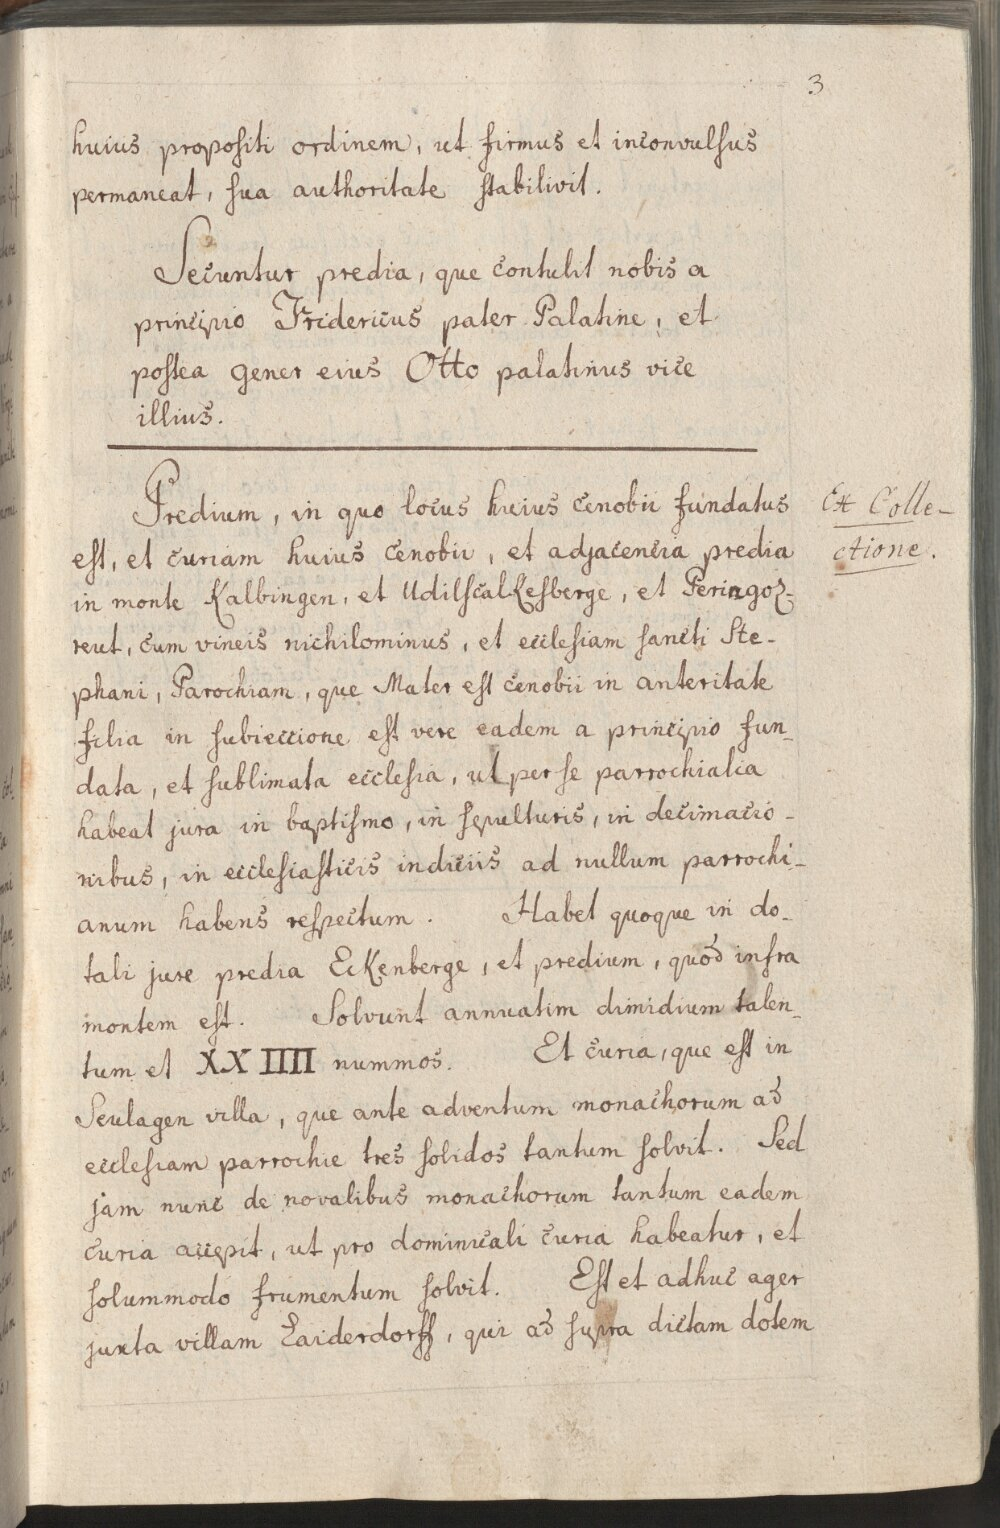 3
huius propositi ordinem, ut firmus et inconvulsus
permaneat, sua authoritate stabilivit.
Secuntur predia, que contulit nobis a
principio Fridericus pater Palatine, et
postea gener eius Otto palatinus vice
illius.
Predium, in quo locus huius cenobii fundatus
est, et curiam huius cenobii, et adjacencia predia
in monte Kalbingen, et UdilscalKesberge, et Peringoz-
reut, cum vineis nichilominus, et ecclesiam sancti Ste-
phani, Parochiam, que Mater est cenobii in anteritate
filia in subieccione est vere eadem a principio fun-
data, et sublimata ecclesia, ut per se parrochialia
habeat jura in baptismo, in sepulturis, in decimacio-
nibus, in ecclesiasticis indiciis ad nullum parrochi-
anum habens respectum. Habet quoque in do-
tali jure predia EcKenberge, et predium, quod infra
montem est. Solvunt annuatim dimidium talen-
tum et XX IIII nummos. Et curia, que est in
Seulagen villa, que ante adventum monachorum ad
ecclesiam parrochie tres solidos tantum solvit. Sed
jam nunc de novalibus monachorum tantum eadem
curia accepit, ut pro dominicali curia habeatur, et
solummodo frumentum solvit. Est et adhuc ager
juxta villam Laiderdorff, qui ad supra dictam dotem
Ex Colle-
ctione.